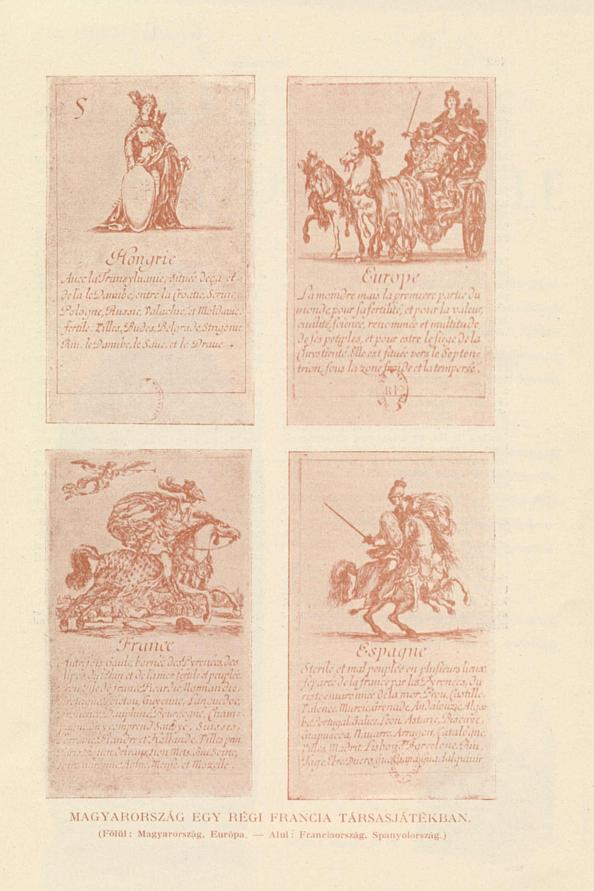 S
Hongrie
Avec la Transylvanie, située deça et
de la le Danube, entre la Croatie, Servie,
Pologne, Russie, Valachie, et Moldavie.
fertile. Villes, Budes, Belgrade, Strigonie
Riu. le Danube, le Saue, et le Draue.
Europe
La moindre mais la premiere partie du
monde, pour sa fertilité, et pour la valeur,
ciuilité, science, renommée et multitude
de ses peuples, et pour estre le siege de la
Chrestienté. Elle est située vers le Septen-
trion, sous la zone froide et la temperée.
BR
France
Autrefois Gaule, bornée des Pyrenées, des
et de la mer, fertile et peuplée
Isle de france, Picardie, Normandie,
Bretagne, Poictou, Guyenne, Languedoc,
Prouence, Dauphiné, Bourgogne, Cham-
comprend Sauoye, Suisses,
Flandre et Hollande. Villes
Orleans, Lion, Mets, Riu. Seine,
Rosne, Meuse et Mozelle
Espagne
Sterile et mal peuplée en plusieurs lieux.
separée de la france par les Pyrenées, du
reste enuironnée de la mer. Prou. Castille
Valence, Murcie, Grenade, Andalouzie, Algar-
be, Portugal, Galice, Leon, Asturie, Biscaye,
Guipuscoa, Nauarre, Arragon, Catalogne.
Villes Madrit, Lisbone, Barcelone, Riu.
Tage, Ebre, Duero, Guadiana, Guadalquiuir
MAGYARORSZÁG EGY RÉGI FRANCIA TÁRSASJÁTÉKBAN.
(Fölül: Magyarország, Európa. — Alul: Franciaország, Spanyolország.)